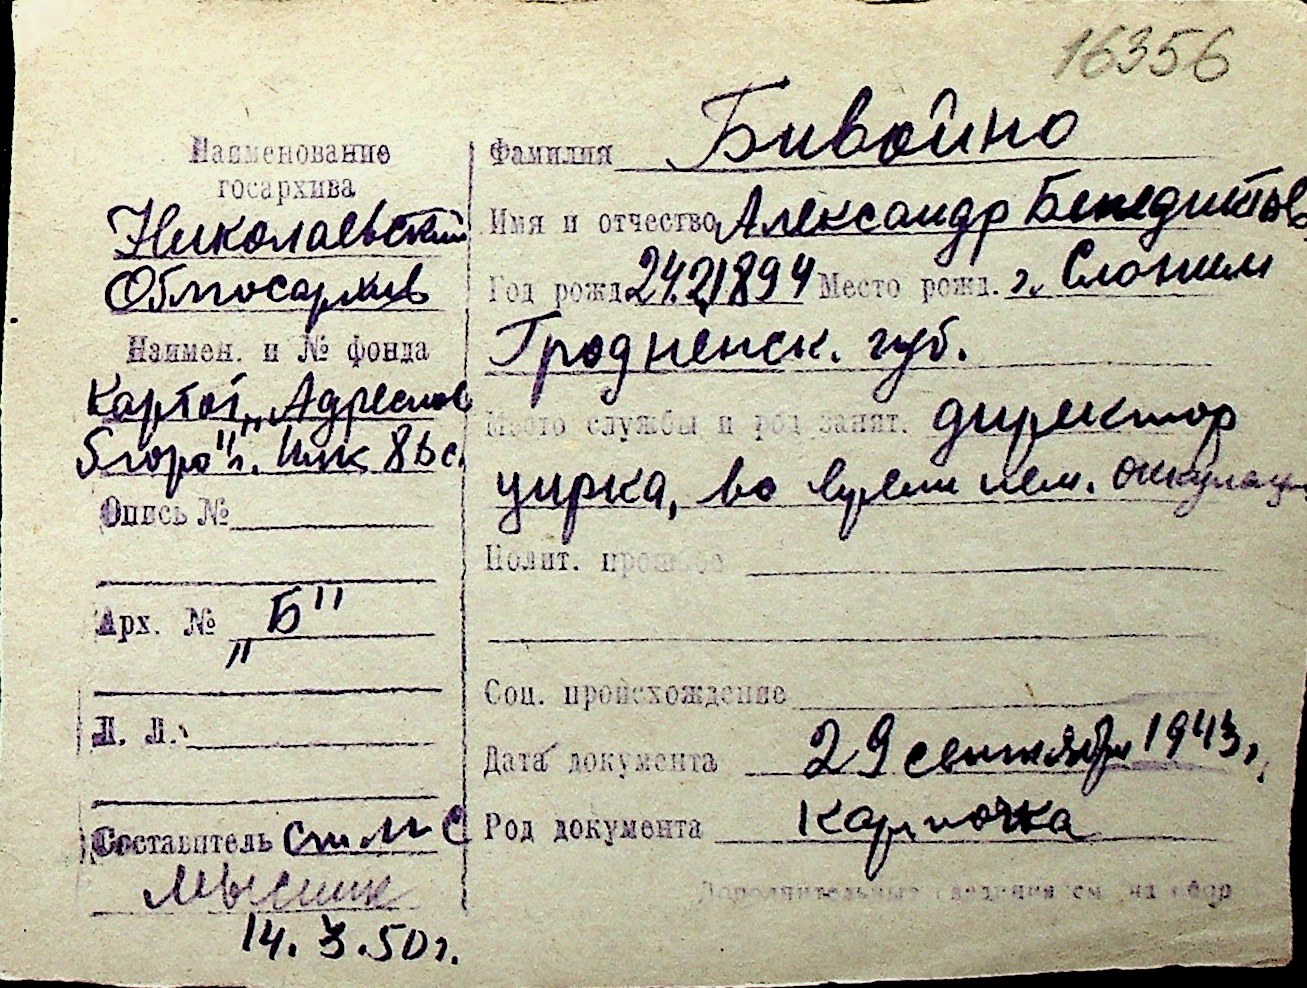 16356
Наименование
госархива
Николаевский
Облгосархив
Наимен. и № фонда
Картот. „Адресное
бюро" г.
Опись №
Арх. № „Б"
Л. Л.
Составитель ст.
14. 3. 50 г.
Фамилия Бивойно
Имя и отчество Александр Бенедиктов
Год рожд. 24.2.1894 Место рожд. г. Слоним
Гродненск. губ.
Место службы и род занят. директор
цирка, во время нем. оккупации
Полит. прошлое
Соц. происхождение
Дата документа 29 сентября 1943 г.
Род документа карточка
Дополнительные сведения см. на обор